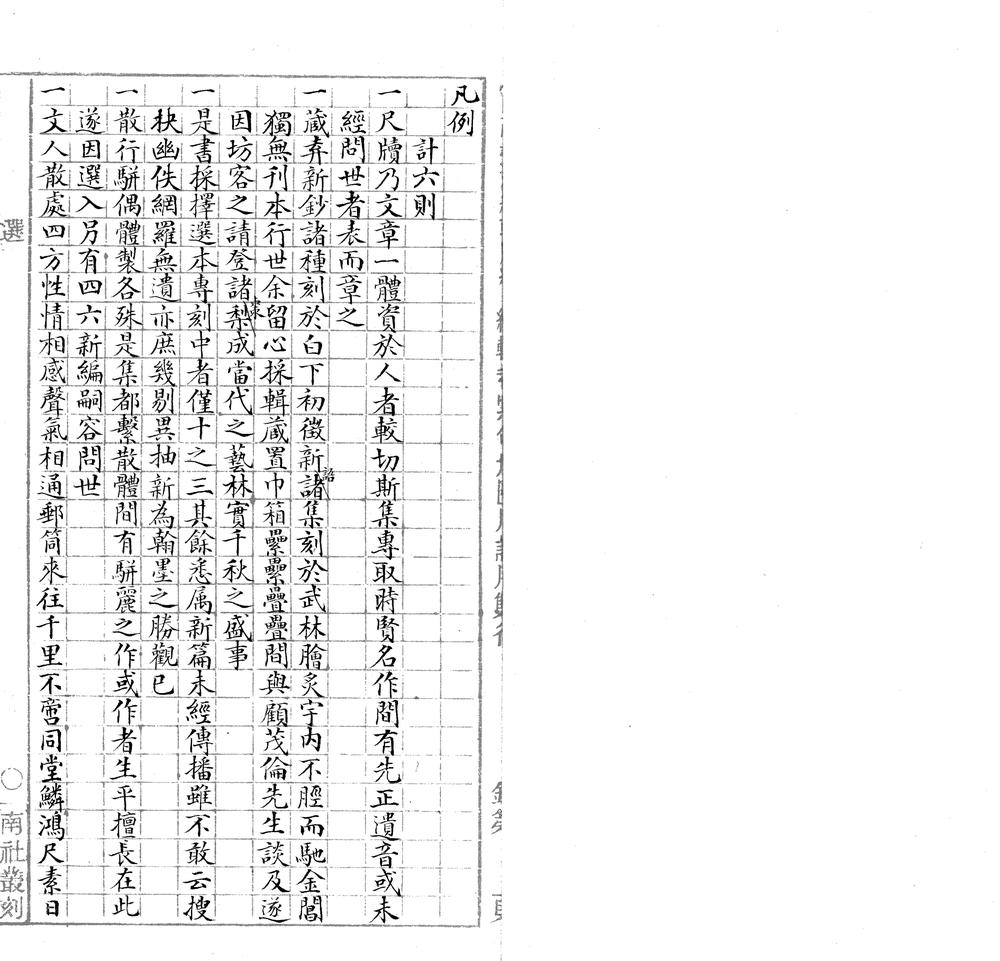 凡例
計六則
一尺牘乃文章一體資於人者較切斯集專取時賢名作間有先正遺音或未
經問世者表而章之
一藏弆新鈔諸種刻於白下初徵新諸集刻於武林膾炙宇內不脛而馳金閶
獨無刊本行世余留心採輯藏置巾箱纍纍疊疊間與顧茂倫先生談及遂
因坊客之請登諸梨棗成當代之藝林實千秋之盛事
一是書採擇選本專刻中者僅十之三其餘悉属新篇未經傳播雖不敢云搜
秘幽佚網羅無遺亦庶幾剔異抽新為翰墨之勝觀已
一散行駢偶體製各殊是集都繫散體間有駢麗之作或作者生平擅長在此
遂因選入另有四六新編嗣容問世
一文人散處四方性情相感聲氣相通郵筒來往千里不啻同堂鱗鴻尺素日
選
〇南社叢刻